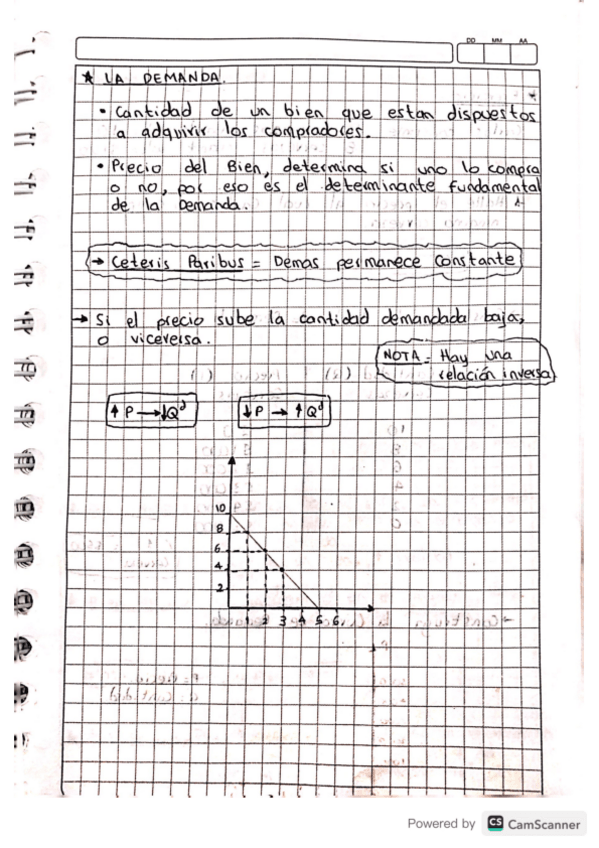 DD MM AA
★ LA DEMANDA.
• Cantidad de un bien que estan dispuestos
a adquirir los compradores.
• Precio del Bien, determina si uno lo compra
o no, por eso es el determinante fundamental
de la Demanda.
→ Ceteris Paribus = Demas permanece constante
→ Si el precio sube la cantidad demandada baja,
o viceversa.
NOTA = Hay una
relación inversa
↑ P → ↓Qd
↓P → ↑ Qd
10
8
6
4
2
1 2 3 4 5 6
Powered by CS CamScanner